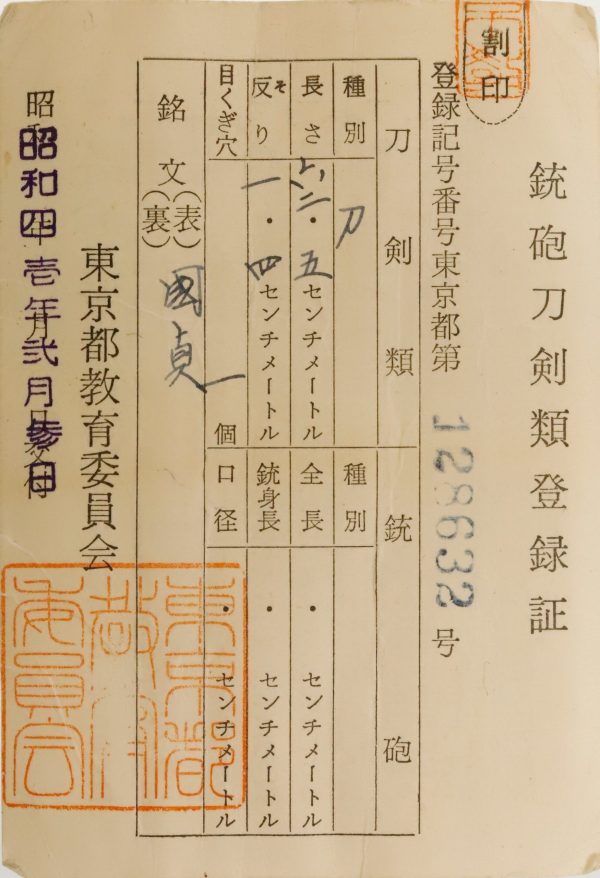 割印
銃砲刀剣類登録証
登録記号番号東京都第 128632 号
刀剣類
種別 刀
長さ 六二・五センチメートル
反り そ 一・四センチメートル
目くぎ穴 一 個
銘文(表)(裏) 國貞
銃砲
種別
全長 ・ センチメートル
銃身長 ・ センチメートル
口径 ・ センチメートル
東京都教育委員会
昭和 年 月 日交付
昭和四壱年弐月参日
東京都教育委員会